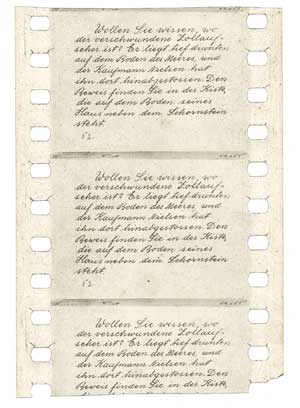 Wollen Sie wissen, wo
der verschwundene Zollauf-
seher ist? Er liegt tief drunten
auf dem Boden des Meeres, und
der Kaufmann Nielsen hat
ihn dort hinabgestossen. Den
Beweis finden Sie in der Kiste,
die auf dem Boden seines
Haus neben dem Schornstein
steht.
Wollen Sie wissen, wo
der verschwundene Zollauf-
seher ist? Er liegt tief drunten
auf dem Boden des Meeres, und
der Kaufmann Nielsen hat
ihn dort hinabgestossen. Den
Beweis finden Sie in der Kiste,
die auf dem Boden seines
Haus neben dem Schornstein
steht.
Wollen Sie wissen, wo
der verschwundene Zollauf-
seher ist? Er liegt tief drunten
auf dem Boden des Meeres, und
der Kaufmann Nielsen hat
ihn dort hinabgestossen. Den
Beweis finden Sie in der Kiste,